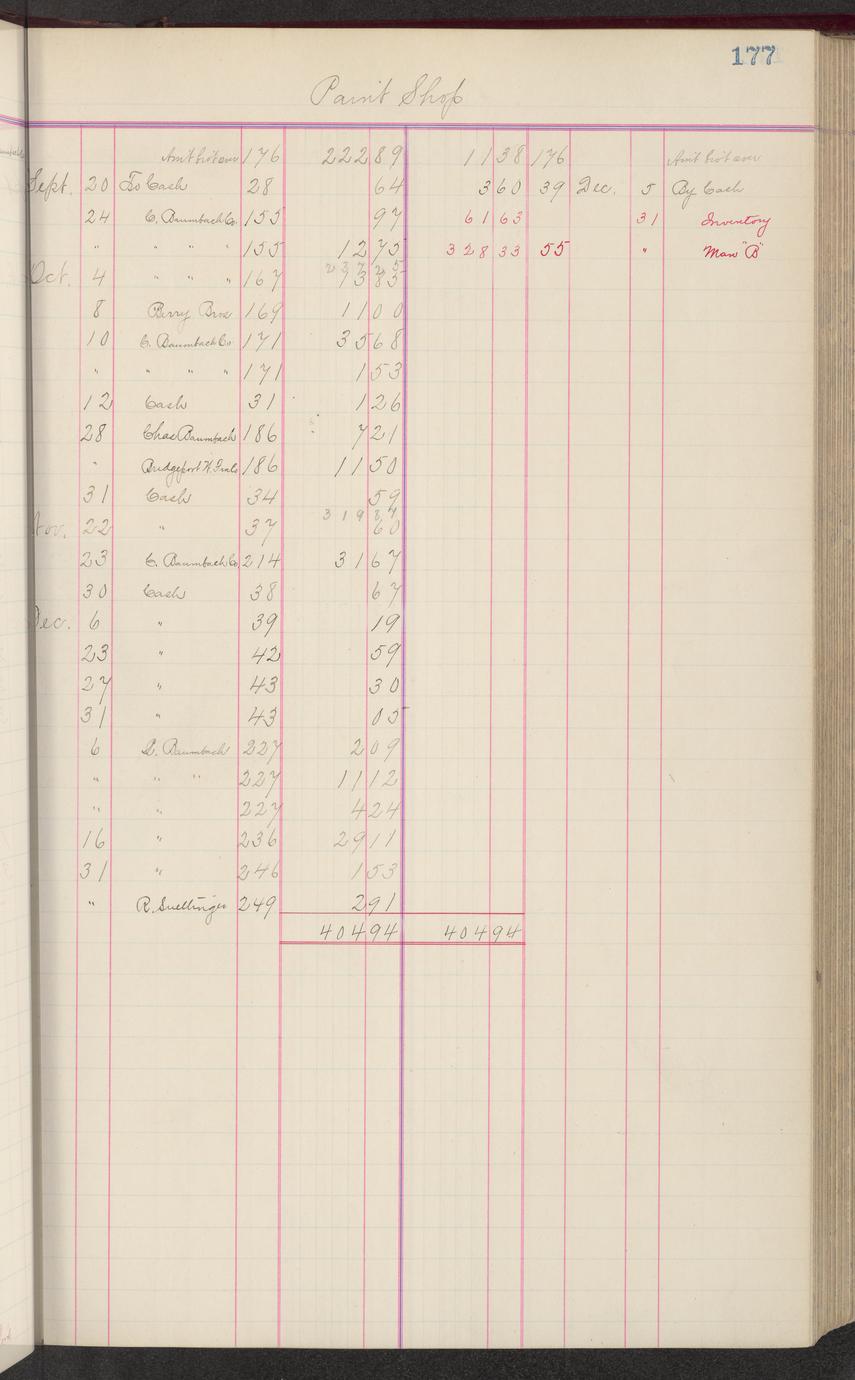 177
Paint Shop
Am't bro't over 176 222 89 11 38 176 Am't bro't over
Sept. 20 To Cash 28 64 3 60 39 Dec. 5 By Cash
24 C. Baumbach Co. 155 97 61 63 31 Inventory
" " " " 155 12 75 328 33 55 " Man "B"
237 25
Oct. 4 " " " 167 13 83
8 Berry Bros 169 11 00
10 C. Baumbach Co. 171 35 68
" " " " 171 1 53
12 Cash 31 1 26
28 Chas Baumbach 186 7 21
" Bridgeport W. 186 11 50
31 Cash 34 59
319 84
Nov. 22 " 37 60
23 C. Baumbach Co. 214 31 67
30 Cash 38 67
Dec. 6 " 39 19
23 " 42 59
27 " 43 30
31 " 43 05
6 C. Baumbach 227 2 09
" " " 227 11 12
" " 227 4 24
16 " 236 29 11
31 " 246 1 53
" R. 249 2 91
404 94 404 94